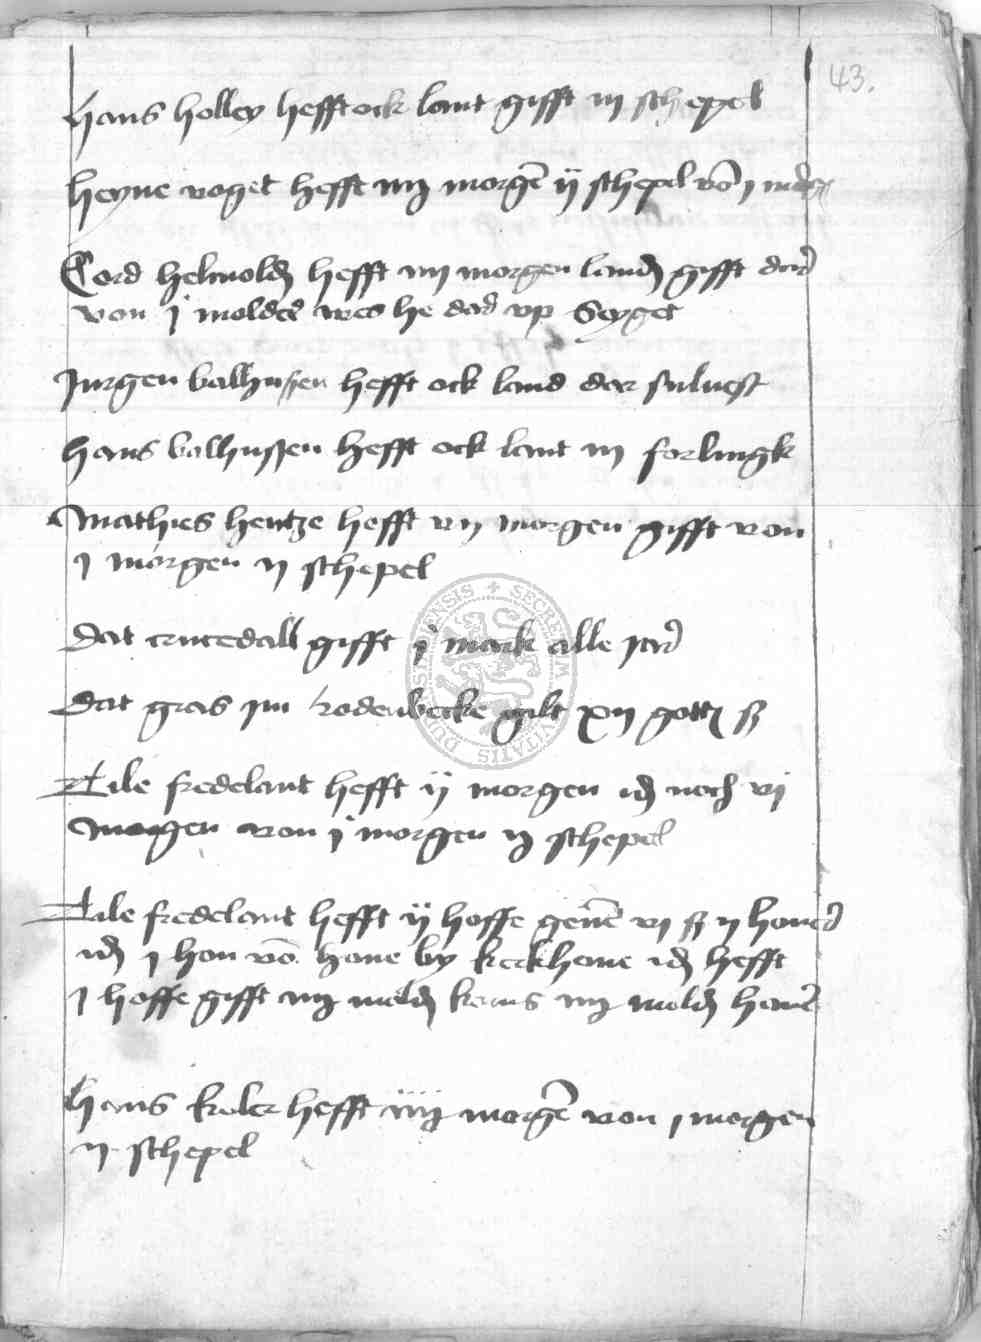 43.
Hans holley hefft ock lant gifft iij schepel
heyne voget hefft iiij morgē ij schepel vō j
Cord helmold hefft iiij morgen land gifft dar
von j molder wes he dar vp Seyget
Jurgen balhusen hefft ock land dar sulvest
hans balhusen hefft ock lant iij forlingk
Mathies hentze hefft vij morgen gifft von
j morgen ij schepel
Dat crucedall gifft j mark alle jar
Dat gras im rodenbecke gilt xij gott ß
Tile fredelant hefft ij morgen id noch vj
morgen von j morgen ij schepel
Tile fredelant hefft ij hoffe geuē vj ß ij honer
id j hon vō hone by kerkhone id hefft
j hoffe gifft iiij mold korns iiij mold hauer
hans koler hefft iiij morgē von j morgen
ij schepel